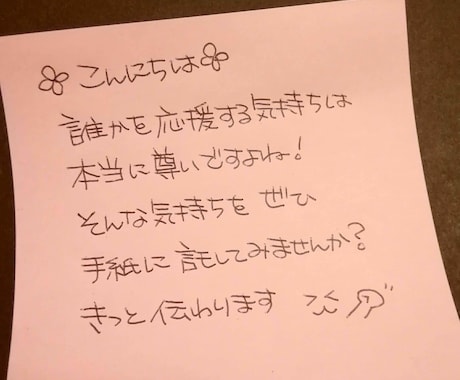 こんにちは
誰かを応援する気持ちは
本当に尊いですよね!
そんな気持ちを ぜひ
手紙に託してみませんか?
きっと伝わります